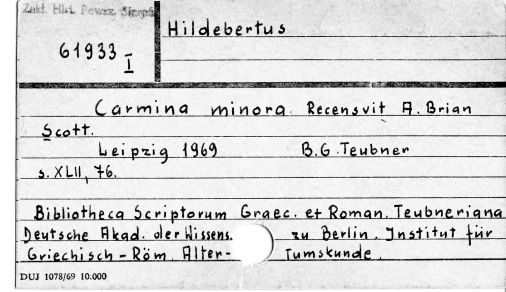 Zakł. Hist. Powsz. Śląska
Hildebertus
61933
I
Carmina minora. Recensvit A. Brian
Scott.
Leipzig 1969 B.G. Teubner
s. XLII, 76.
Bibliotheca Scriptorum Graec. et Roman. Teubneriana
Deutsche Akad. der Wissens. zu Berlin. Institut für
Griechisch-Röm. Alter- tumskunde.
DUJ 1078/69 10.000